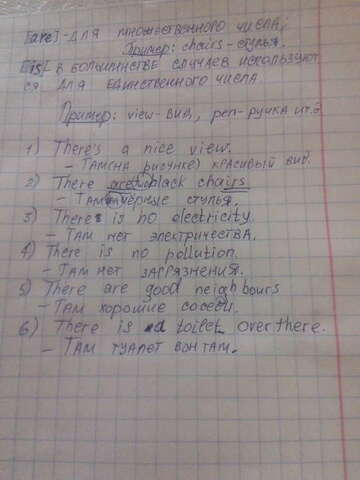 [are]-ДЛЯ МНОЖЕСТВЕННОГО ЧИСЛА;
Пример: chairs-стулья.
[is]-В БОЛШИНСТВЕ СЛУЧАЕВ ИСПОЛЬЗУЮТ
СЯ ДЛЯ ЕДИНСТВЕННОГО ЧИСЛА
Пример: view-вид, pen-ручка и т.д
1) There's a nice view.
- ТАМ(НА РИСУНКЕ) КРАСИВЫЙ ВИД.
2) There are black chairs
- ТАМ ЧЁРНЫЕ СТУЛЬЯ.
3) There is no electricity.
- ТАМ НЕТ ЭЛЕКТРИЧЕСТВА.
4) There is no pollution.
- ТАМ НЕТ ЗАГРЯЗНЕНИЯ.
5) There are good neighbours
- ТАМ ХОРОШИЕ СОСЕДИ.
6) There is a toilet over there.
- ТАМ ТУАЛЕТ ВОН ТАМ.